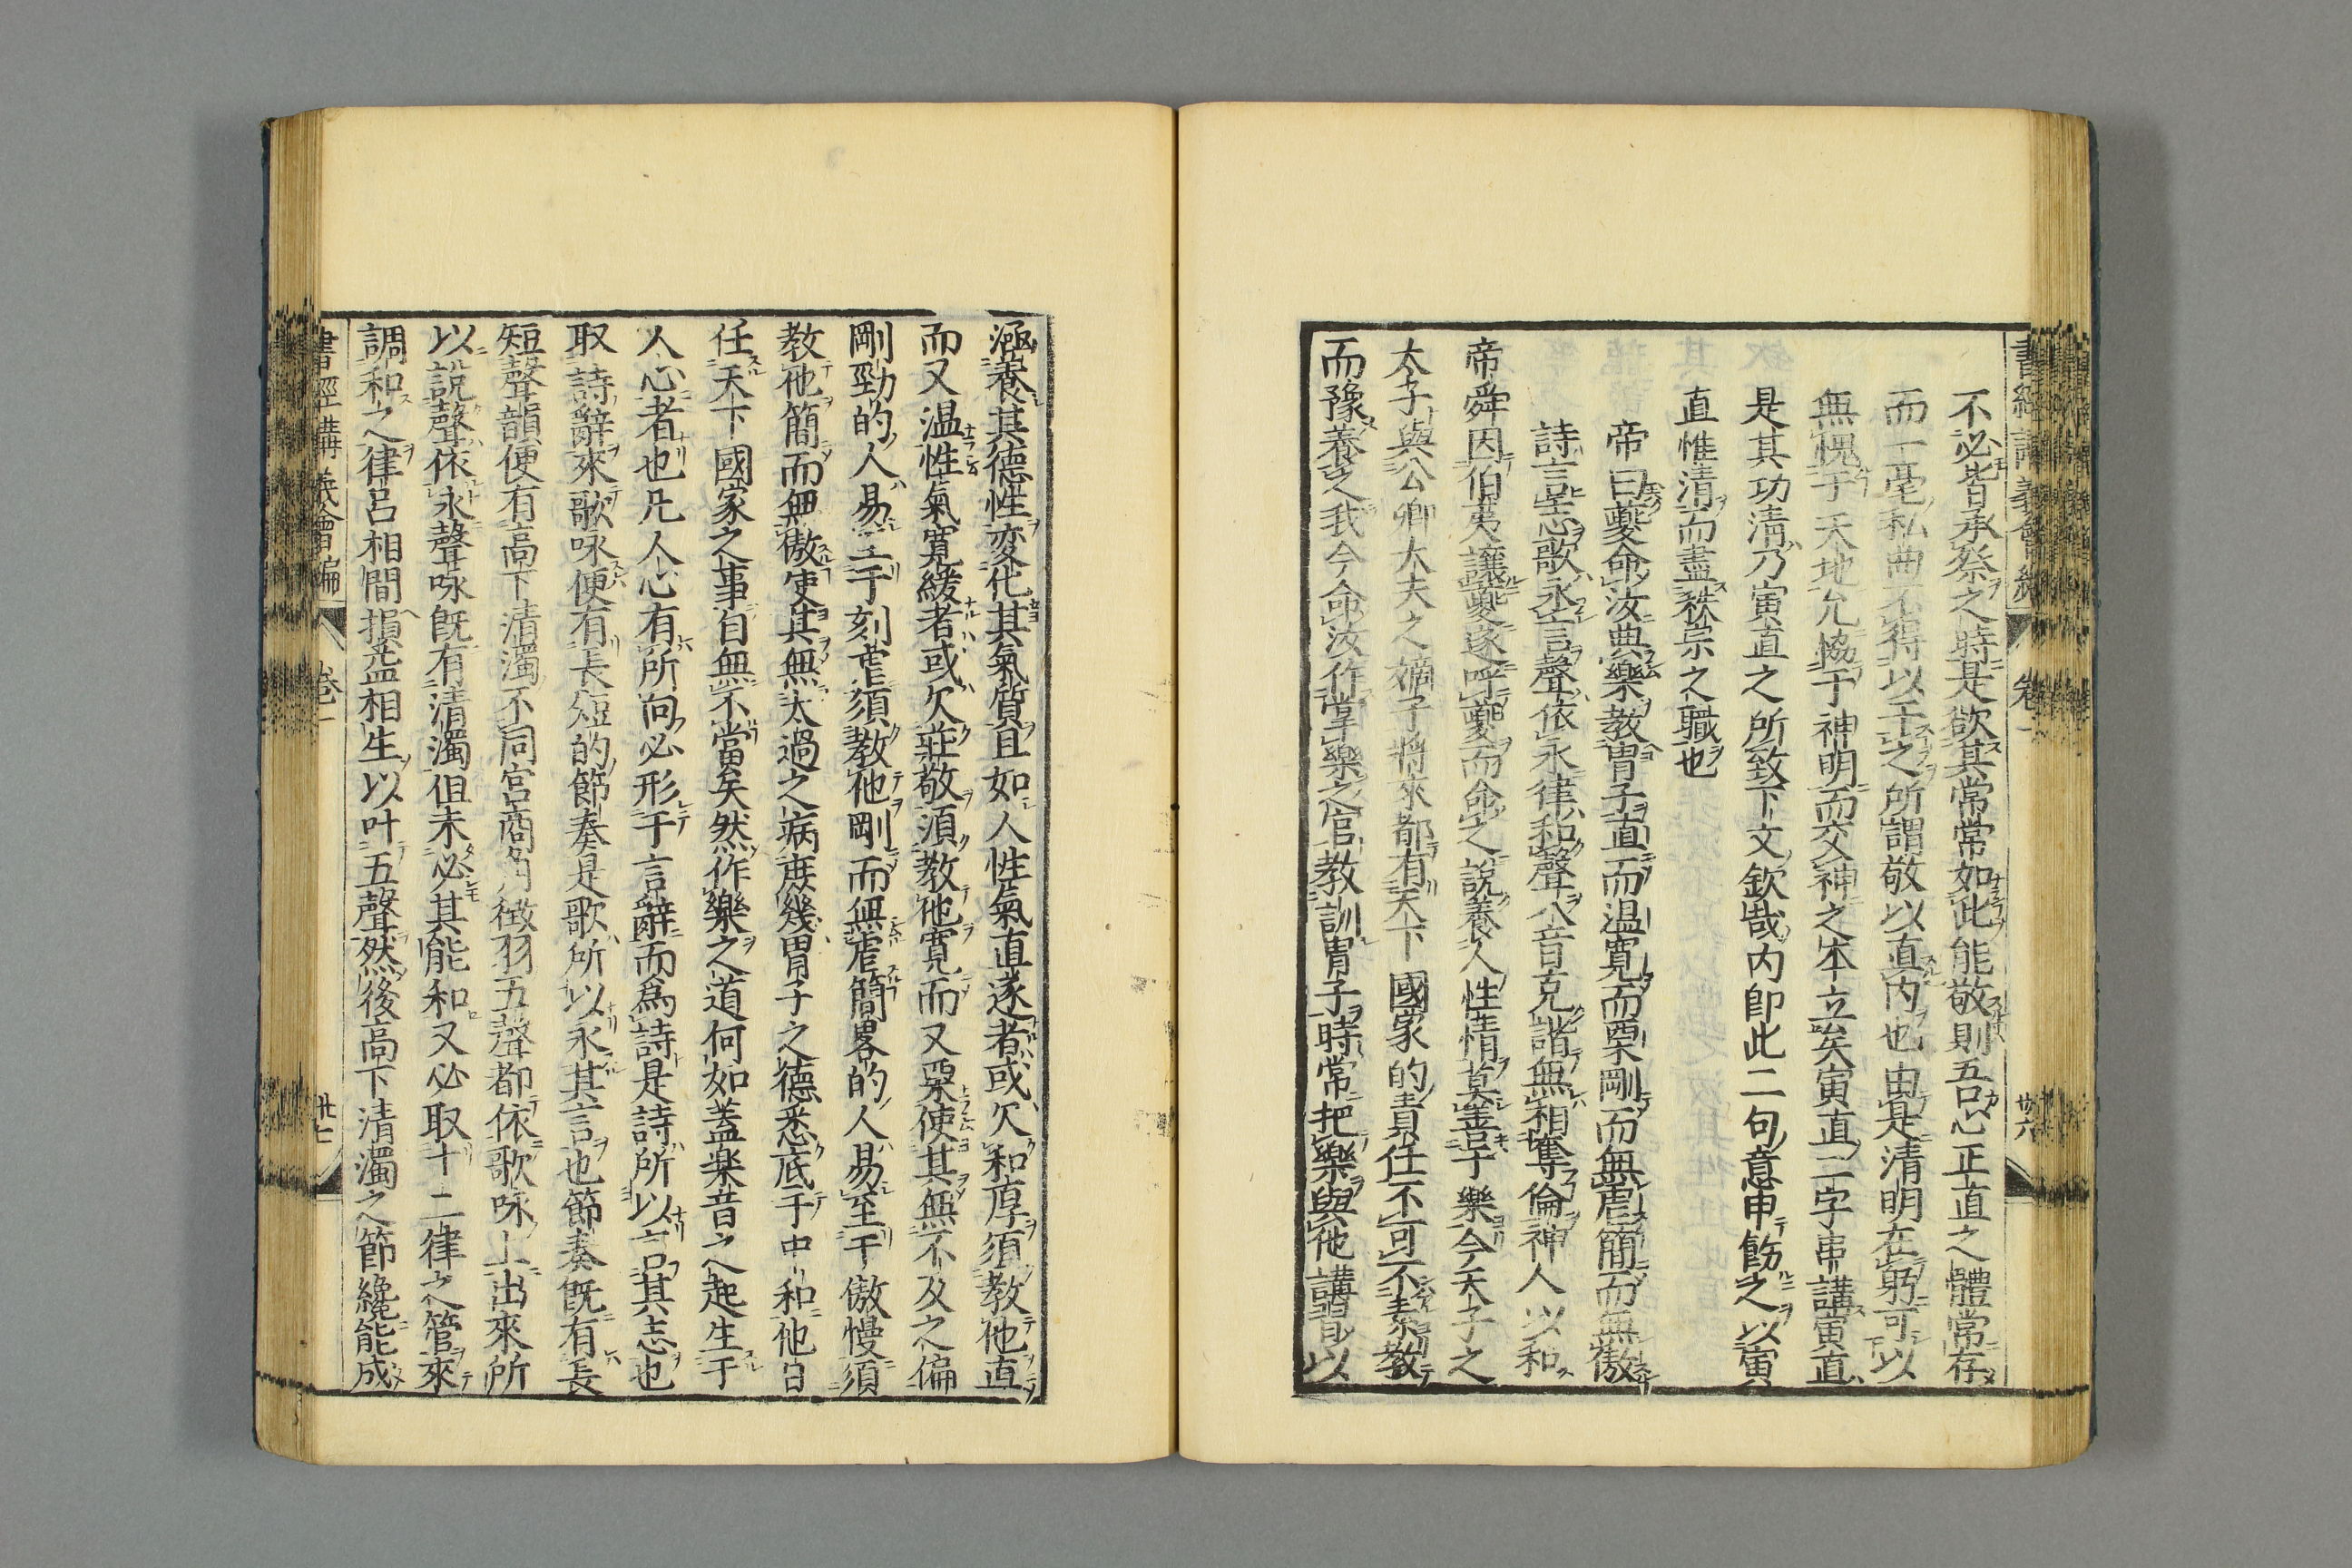 書經講義會編 卷一 廿六
不必皆承祭之時是欲其常常如此能敬則吾心正直之體常存
而一毫私曲不得以干之所謂敬以直内也由是清明在躬可以
無愧于天地允協于神明而交神之本立矣寅直二字串講寅直
是其功清乃寅直之所致下文欽哉内即此二句意申飭之以寅
直惟清而盡秩宗之職也
帝曰夔命汝典樂教冑子直而温寛而栗剛而無虐簡而無傲
詩言志歌永言聲依永律和聲八音克諧無相奪倫神人以和
帝舜因伯夷讓夔遂呼夔而命之説養人性情莫善于樂今天子之
太子與公卿大夫之嫡子將來都有天下國家的責任不可不素教
而豫養之我今命汝作掌樂之官教訓冑子時常把樂與他講習以
涵養其德性変化其氣質且如人性氣直遂者或欠和厚須教他直
而又温性氣寛緩者或欠莊敬須教他寛而又栗使其無不及之偏
剛勁的人易至于刻虐須教他剛而無虐簡畧的人易至于傲慢須
教他簡而無傲使其無太過之病庶幾冑子之德悉底于中和他日
任天下國家之事自無不當矣然作樂之道何如蓋楽音之起生于
人心者也凡人心有所向必形于言辭而爲詩是詩所以言其志也
取詩辭來歌咏便有長短的節奏是歌所以永其言也節奏既有長
短聲韻便有高下清濁不同宮商角徴羽五聲都依歌咏上出來所
以説聲依永聲咏既有清濁但未必其能和又必取十二律之管來
調和之律呂相間損益相生以叶五聲然後高下清濁之節纔能成
書經講義會編 卷一 廿七